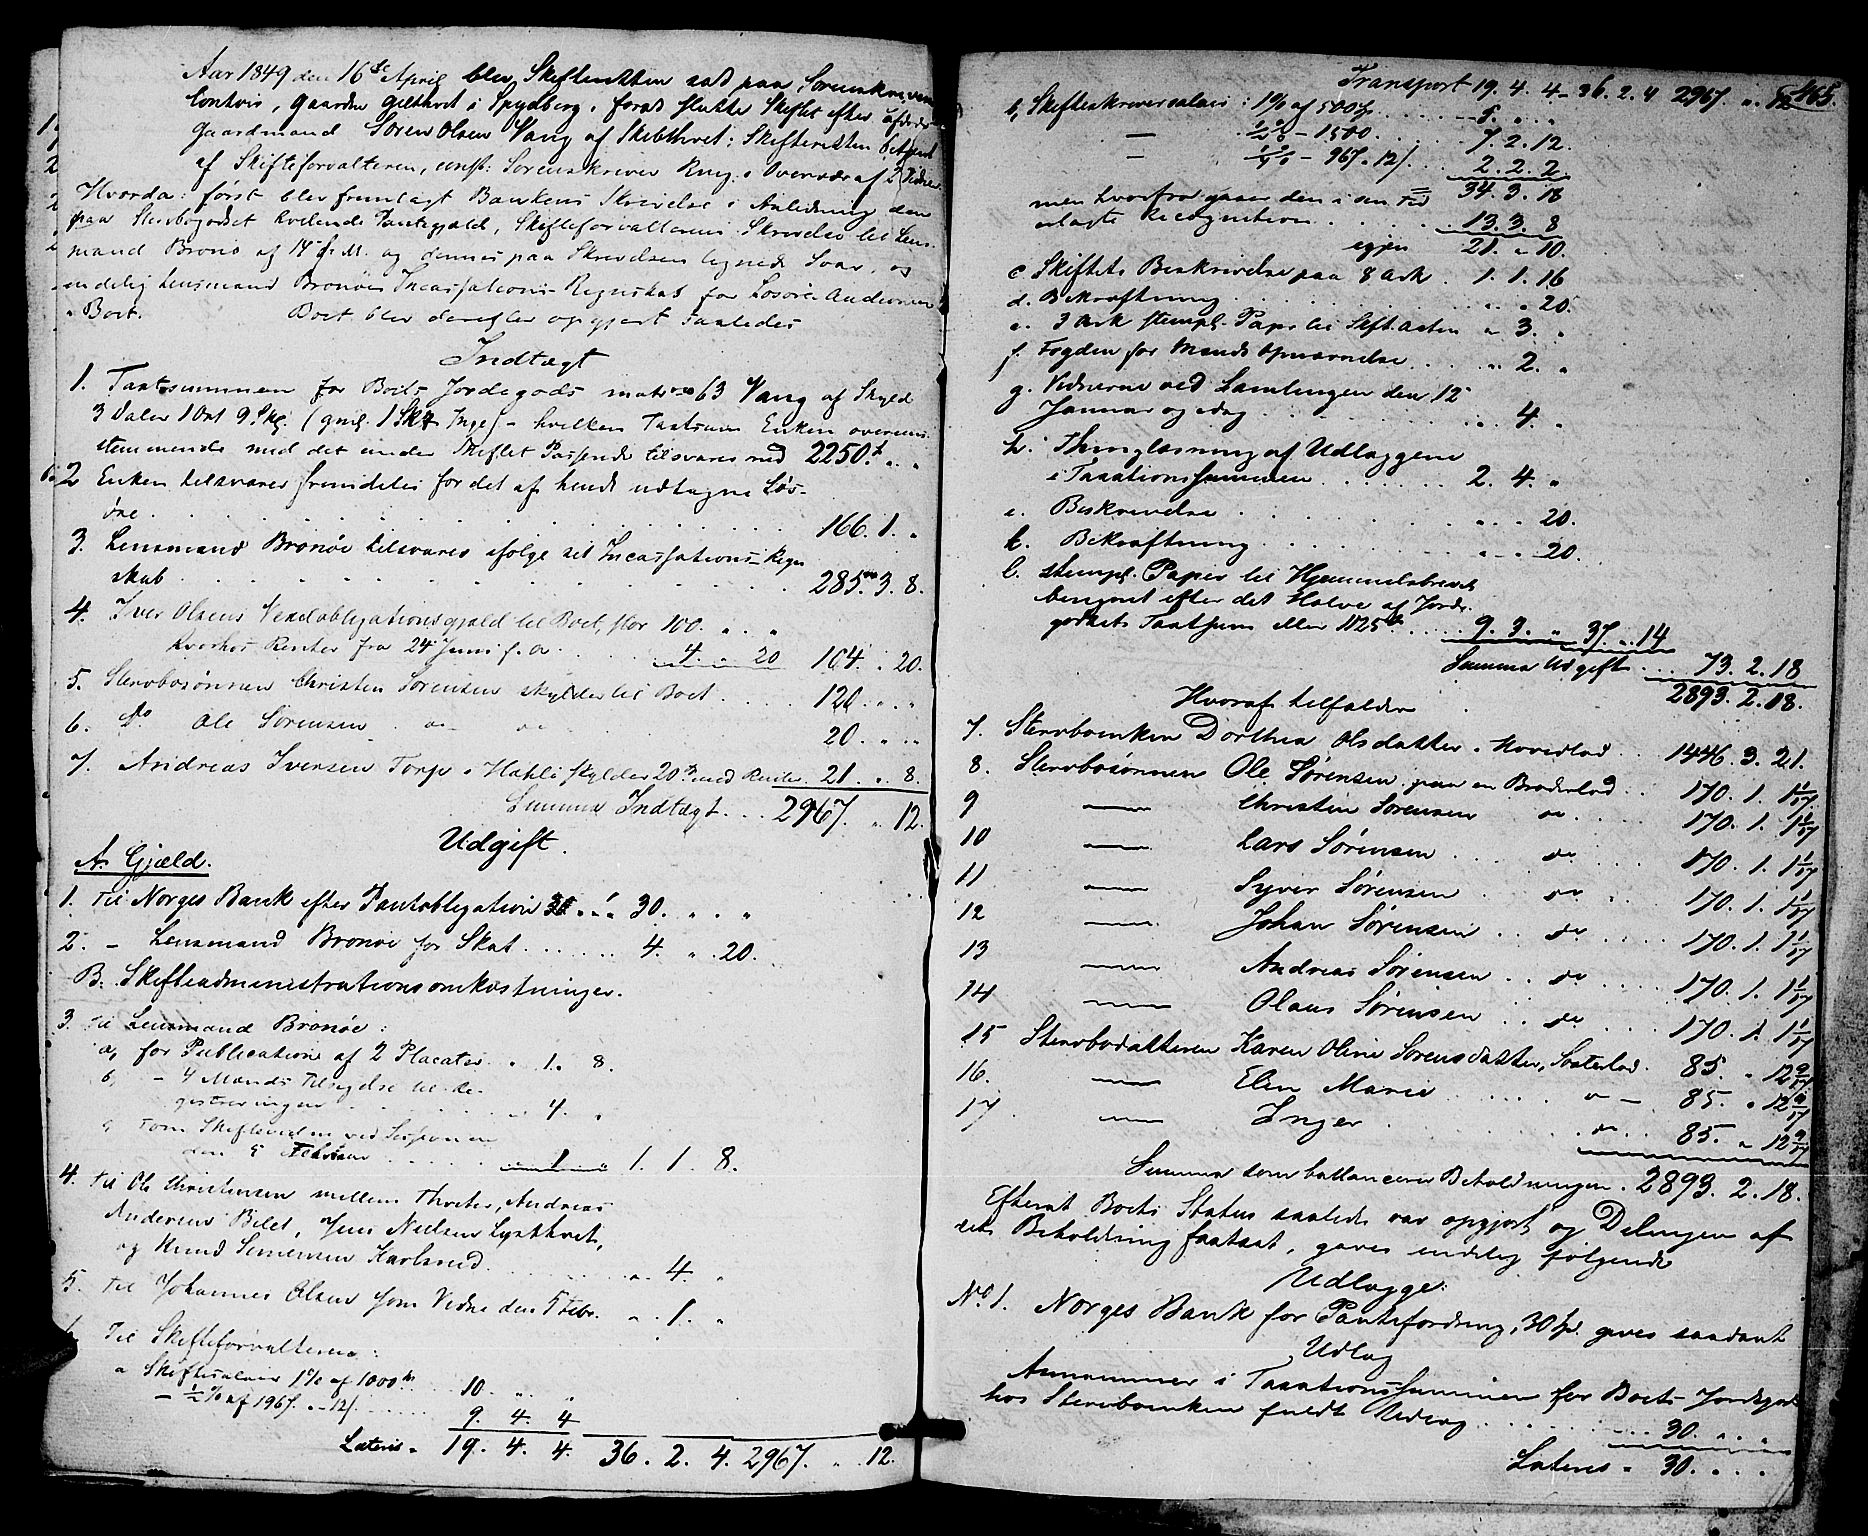 Aar 1849 den 16de April blev Skifteretten sat paa Sorenskriver
Contoir, Gaarden Gilthvet i Spydberg, forat slutte Skiftet efter afdøde
Gaardmand Søren Olsen Vang af Skibthvet: Skifteretten betjent
af Skifteforvalteren, const: Sorenskriver Krug i Overvær af 2 Vidner.
Hvorda: først blev fremlagt Bankens Skrivelse i Anledning den
paa Stervbogodset hvilende Pantegjæld, Skifteforvalterens Skrivelse til Lens-
mand Bronøe af 14 f. M. og dennes paa Skrivelsen tegnede Svar, og
endelig Lensmand Bronøes Incassations-Regnskab for Løsøre Auctionen
i Boet. Boet blev derefter opgjort saaledes
Indtægt
1. Taxtsummen for Boets Jordegods matr no 63 Vang af Skyld
3 Daler 1 Ort 9 Skl. (gml. 1 Skt Inge) - hvilken Taxtsum Enken overens-
stemmende med det under Skiftet Passerede tilsvarer med 2250. „ „
2 Enken tilsvarer fremdeles for det af hende udtagne Løs-
øre . . . 166. 1. „
3. Lensmand Bronøe tilsvarer ifølge sit Incassations-Regn
skab . . . 285. 3. 8.
4. Iver Olsens Vexelobligationsgjæld til Boet, stor 100. „ „
hvorhos Renter fra 24 Juni f. A . . 4. „ 20 104. „ 20.
5. Stervbosønnen Christen Sørensen skylder til Boet . . . 120. „ „
6. do Ole Sørensen do do 20. „ „
7. Andreas Iversen Torp i Hahli skylder 20 med Renter 21. „ 8.
Summa Indtægt . . . 2967. „ 12.
Udgift.
A. Gjæld.
1. Til Norges Bank efter Pantobligation 30 „ „ 30. „ „
2. - Lensmand Bronøe for Skat . . . 4. „ 20.
B. Skifteadministrationsomkostninger.
3. Til Lensmand Bronøe:
a, for Publication af 2 Placater . „ 1. 8.
b, - 4 Mænds Tilsigelse til Re-
gistreringen . . . „ 4. „
c, som Skiftevidne ved Sessionen
den 5 Februar . . . „ 1 „ 1. 1. 8.
4. Til Ole Christensen mellem Thvete, Andreas
Andersen Bilet, Jens Nielsen Lysthvet,
og Knud Simensen Karlsrud . . . „ 4. „
5. Til Johannes Olsen som Vidne den 5 Febr. „ 1. „
6. Til Skifteforvalteren:
a Skiftesalair 1% af 1000 . . 10. „ „
- ½ % af 1967. „ 12 . . . 9. 4. 4
Lateris „ 19. 4. 4. 36. 2. 4. 2967. „ 12.
465.
Transport 19. 4. 4 - 36. 2. 4 2967. „ 12
b, Skifteskriversalair: 1% af 500 . . . 5. „ „
— ½ % - 1500 . . . 7. 2. 12.
— ¼ % - 967. „ 12 . . 2. 2. 2
34. 3. 18
men hvorfra gaaer den i sin Tid
erlagte Recognition . . . 13. 3. 8
igjen 21. „ 10.
c Skiftets Beskrivelse paa 8 Ark . 1. 1. 16
d. Bekræftning . . . „ „ 20.
e. 3 Ark stempl. Papir til Skift.acten „ 3. „
f. Fogden for Mænds Opnævnelse . . . „ 2. „
g. Vidnerne ved Samlingen den 12
Januar og idag . . . „ 4. „
h. Thinglæsning af Udlæggene
i Taxationssummen . . . 2. 4. „
i. Beskrivelse . . . „ „ 20.
k. Bekræftning . . . „ „ 20.
l. stempl. Papir til Hjemmelsbrevet
beregnet efter det Halve af Jorde-
godsets Taxtsum eller 1125 . . 9. 3. „ 37. „ 14
Summa Udgift . . . 73. 2. 18
2893. 2. 18.
Hvoraf tilfalder
7. Stervboenken Dorthea Olsdatter i Hovedlod . . 1446. 3. 21.
8. Stervbosønnen Ole Sørensen paa en Broderlod . . 170. 1. 1 1/17.
9 — Christen Sørensen do . . . 170. 1. 1 1/17
10 — Lars Sørensen . . . do . . . 170. 1. 1 1/17
11 — Syver Sørensen . . do . . . 170. 1. 1 1/17
12 — Johan Sørensen . . do . . . 170. 1. 1 1/17
13 — Andreas Sørensen . . do . . . 170. 1. 1 1/17
14 — Olaus Sørensen . . do . . . 170. 1. 1 1/17
15 Stervbodatteren Karen Oline Sørensdatter, Søsterlod . 85. „ 12 9/17
16. — Elen Marie . . . do - 85. „ 12 9/17
17 — Inger . . . do . . 85. „ 12 9/17
Summa som ballancerer Beholdningen . 2893. 2. 18.
Efterat Boets Status saaledes var opgjort og Delingen af
dets Beholdning fastsat, gaves endelig følgende
Udlægge:
No 1. Norges Bank for Pantefordring, 30 gives saadant
Udlæg
Annammer i Taxationssummen for Boets Jordegods
hos Stervboenken fuldt Udlæg . . . 30. „ „
Lateris „ 30. „ „